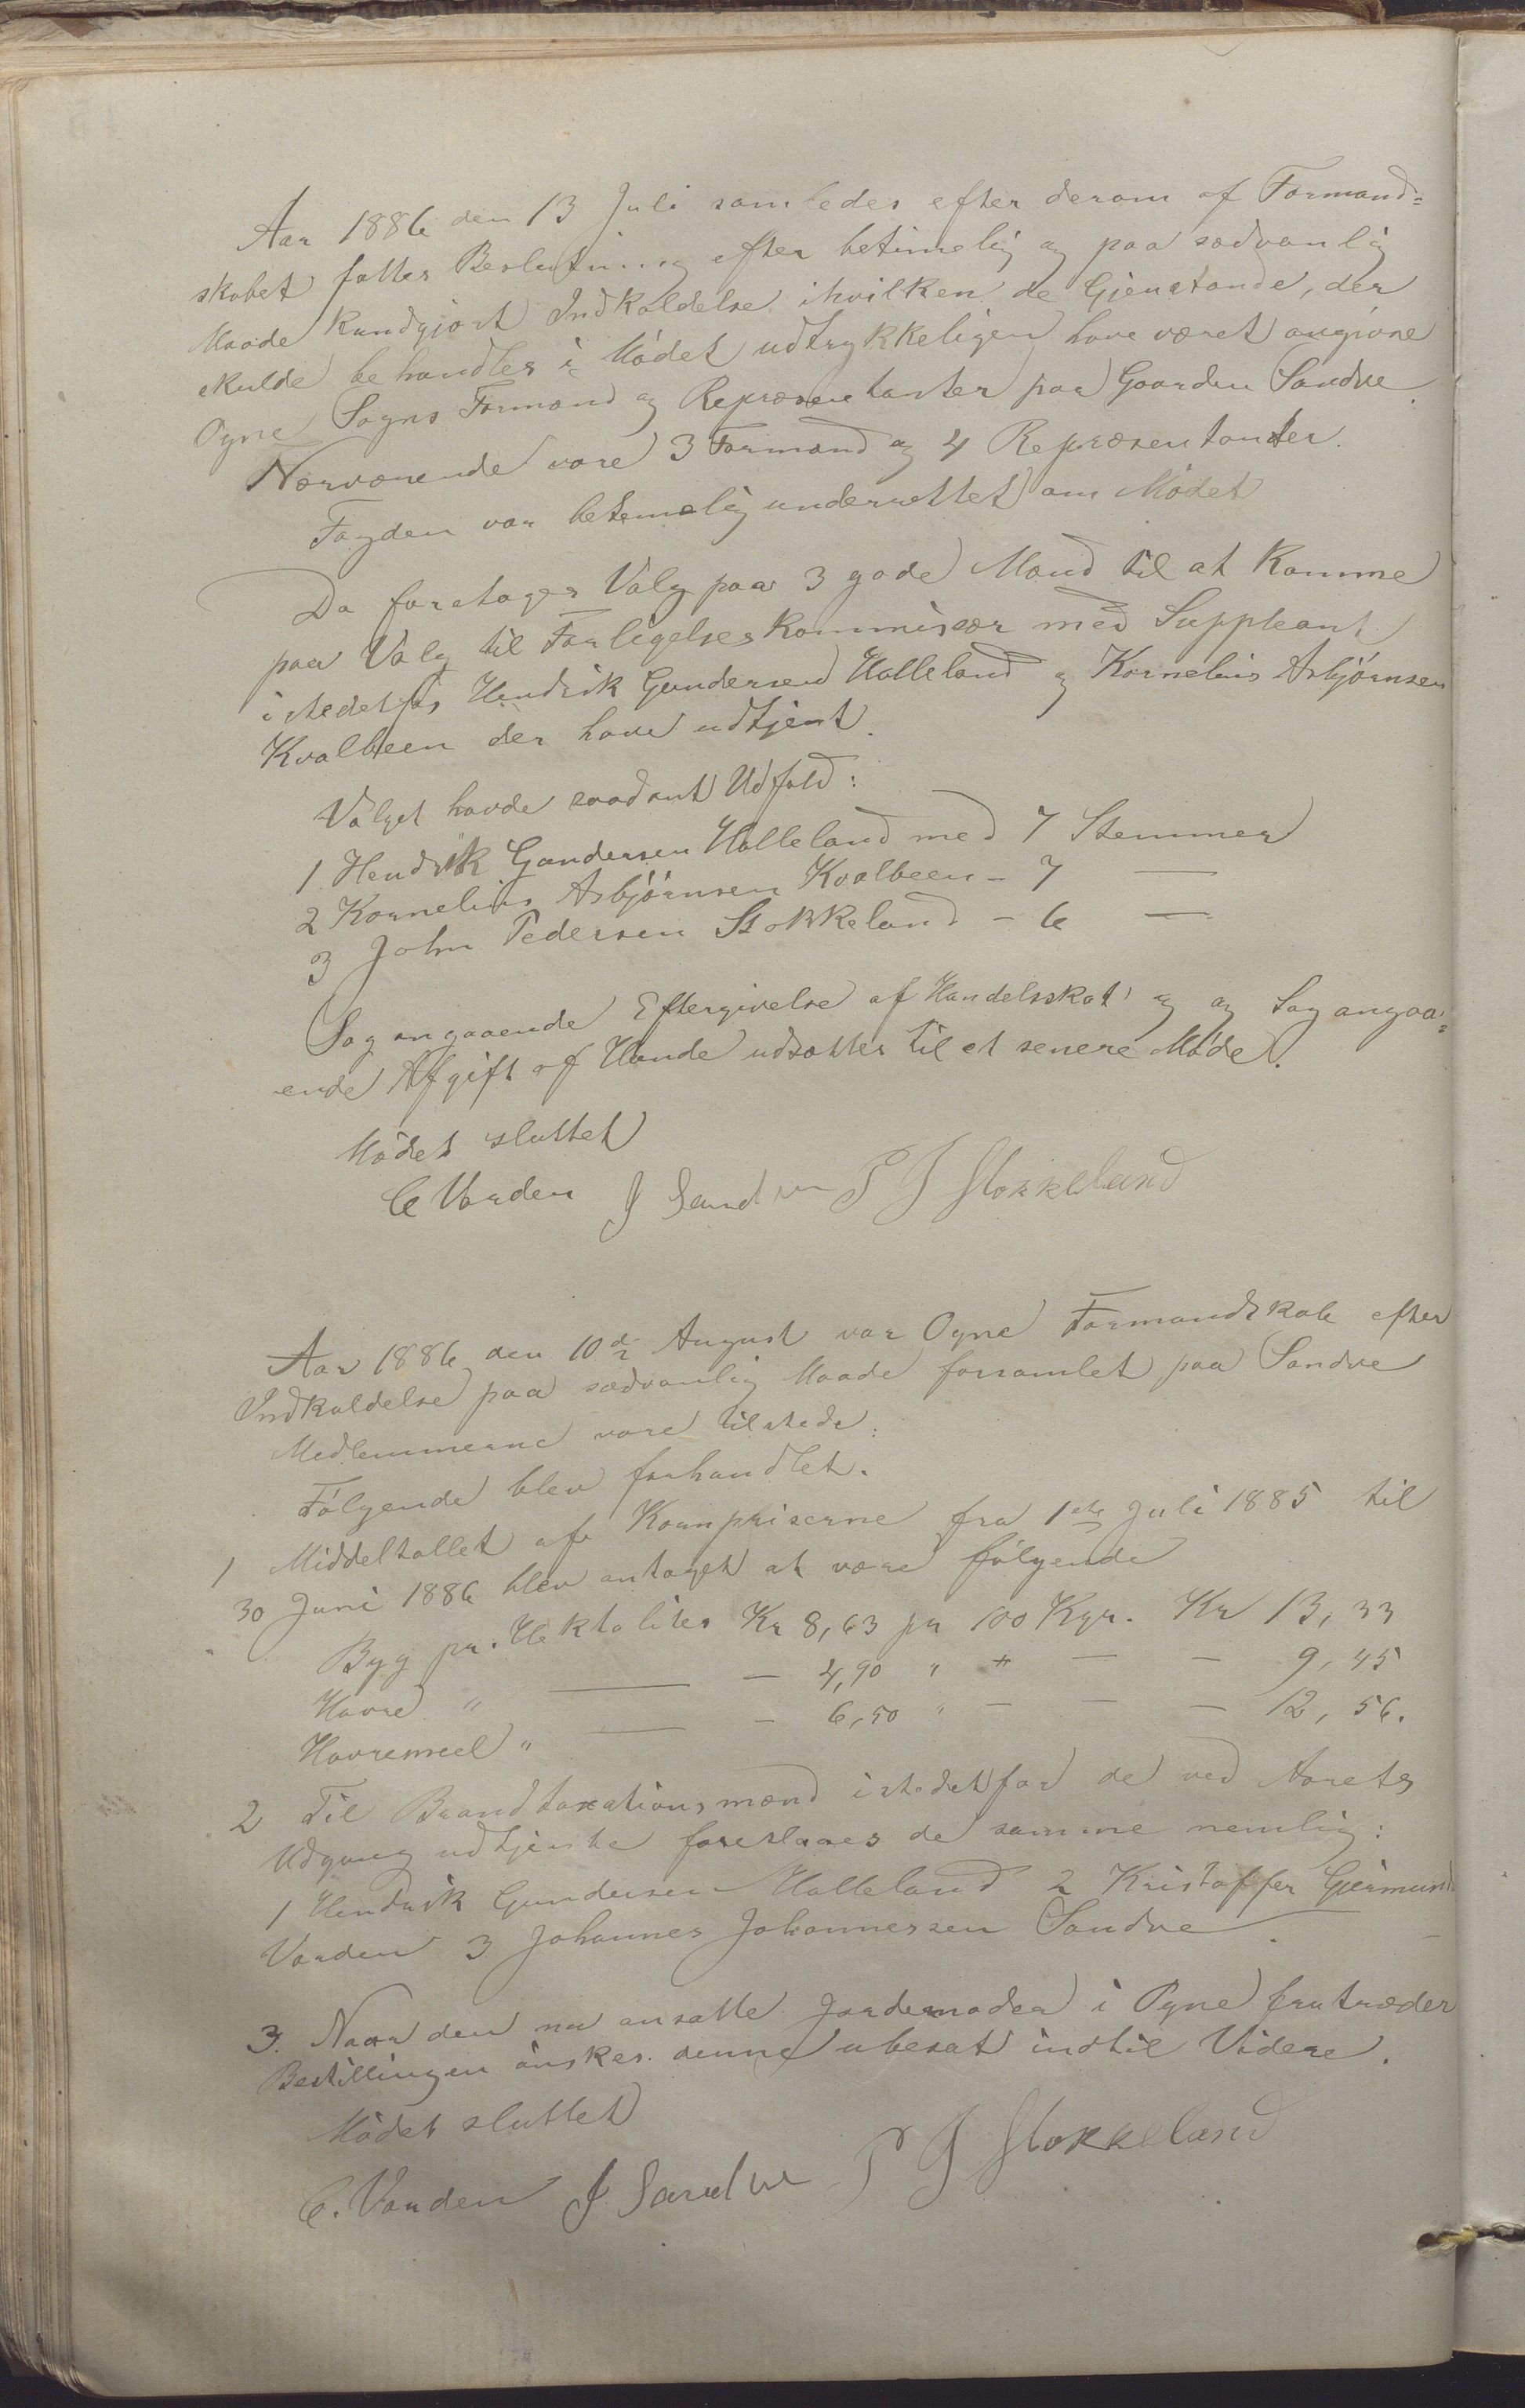 Aar 1886 den 13 Juli samledes efter derom af Formand=
skabet fattes Beslutning efter betimelig og paa sædvanlig
Maade kundgjort Indkaldelse ihvilken de Gjenstande, der
skulde behandles i Mødet udtrykkeligen have været angivne
Ogne Sogns Formænd og Repræsentanter paa Gaarden Sandve.
Nærværende vare 3 Formænd og 4 Repræsentanter.
Fogden var betemelig underrettet om Mødet
Da foretages Valg paa 3 gode Mænd til at komme
paa Valg til Forligelseskommissær med Suppleant
istedetfor Hendrik Gundersen Halleland og Kornelius Asbjørnsen
Kvalbeen der have udtjent.
Valget havde saadant Udfald:
1 Hendrik Gundersen Halleland med 7 Stemmer
2 Kornelius Asbjørnsen Kvalbeen – 7 —
3 John Pedersen Stokkeland – 6 —
Sag angaaende Eftergivelse af Handelsskat og og Sag angaa=
ende Afgift af Hunde udsættes til et senere Møde.
Mødet sluttet
C Varden J Sandve P J Stokkeland
Aar 1886 den 10de August var Ogne Formandskab efter
Indkaldelse paa sædvanlig Maade forsamlet paa Sandve
Medlemmerne vare tilstede.
Følgende blev forhandlet.
1 Middeltallet af Kornpriserne fra 1ste Juli 1885 til
30 Juni 1886 blev antaget at være følgende
Byg pr. Hektoliter Kr 8,63 pr 100 Kgr. Kr 13,33
Havre " — – 4,90 " + — – 9,45
Havremeel " — – 6,50 " – – – 12,56.
2 Til Brandtaxationsmænd istedetfor de ved Aarets
Udgang udtjente foreslaaes de samme nemlig:
1 Hendrik Gundersen Halleland 2 Kristoffer Gjermunds
Varden 3 Johannes Johannessen Sandve.
3. Naar den nu ansatte Jordemoder i Ogne fratræder
Bestillingen ønskes denne ubesat indtil Videre.
Mødet sluttet
C. Varden J Sandve P J Stokkeland